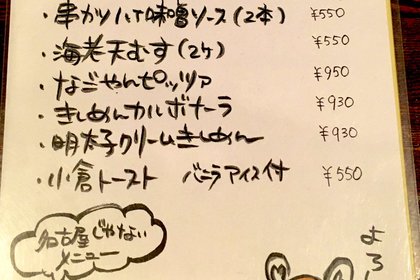 ・串カツ 八丁味噌ソース(2本) ¥550
・海老天むす(2ケ) ¥550
・なごやんピッツァ ¥950
・きしめんカルボナーラ ¥930
・明太子クリームきしめん ¥930
・小倉トースト バニラアイス付 ¥550
名古屋じゃない
メニュー
よろし